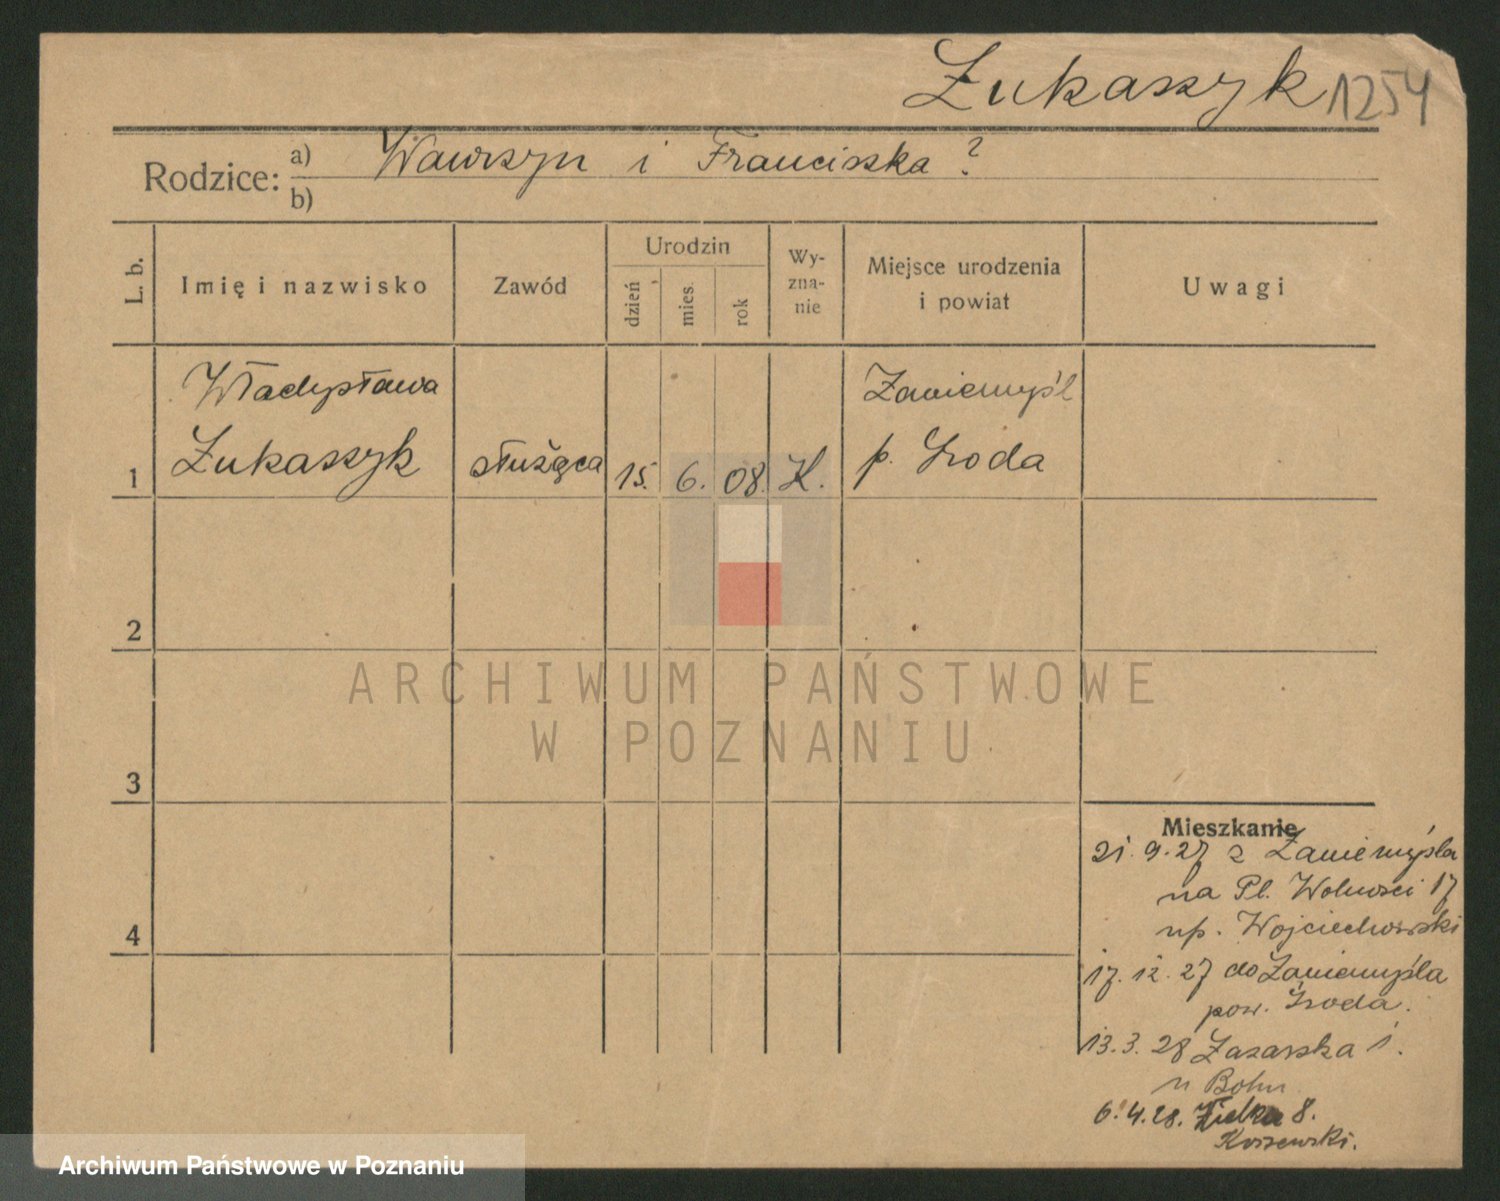 Łukaszyk 1254
Rodzice: a) Wawrzyn i Franciszka ?
b)
L. b.
Imię i nazwisko
Zawód
Urodzin
dzień
mies.
rok
Wy-
zna-
nie
Miejsce urodzenia
i powiat
Uwagi
Władysława Zaniemyśl
1 Łukaszyk służąca 15. 6. 08. K. p. Środa
2
ARCHIWUM PAŃSTWOWE
W POZNANIU
3
Mieszkanie
21. 9. 27 z Zaniemyśla
na Pl. Wolności 17
4 up. Wojciechowski
17. 12. 27 do Zaniemyśla
pow. Środa.
13. 3. 28 Łazarska 1.
u Bohn
6. 4. 28. Wielka 8.
Koszewski.
Archiwum Państwowe w Poznaniu